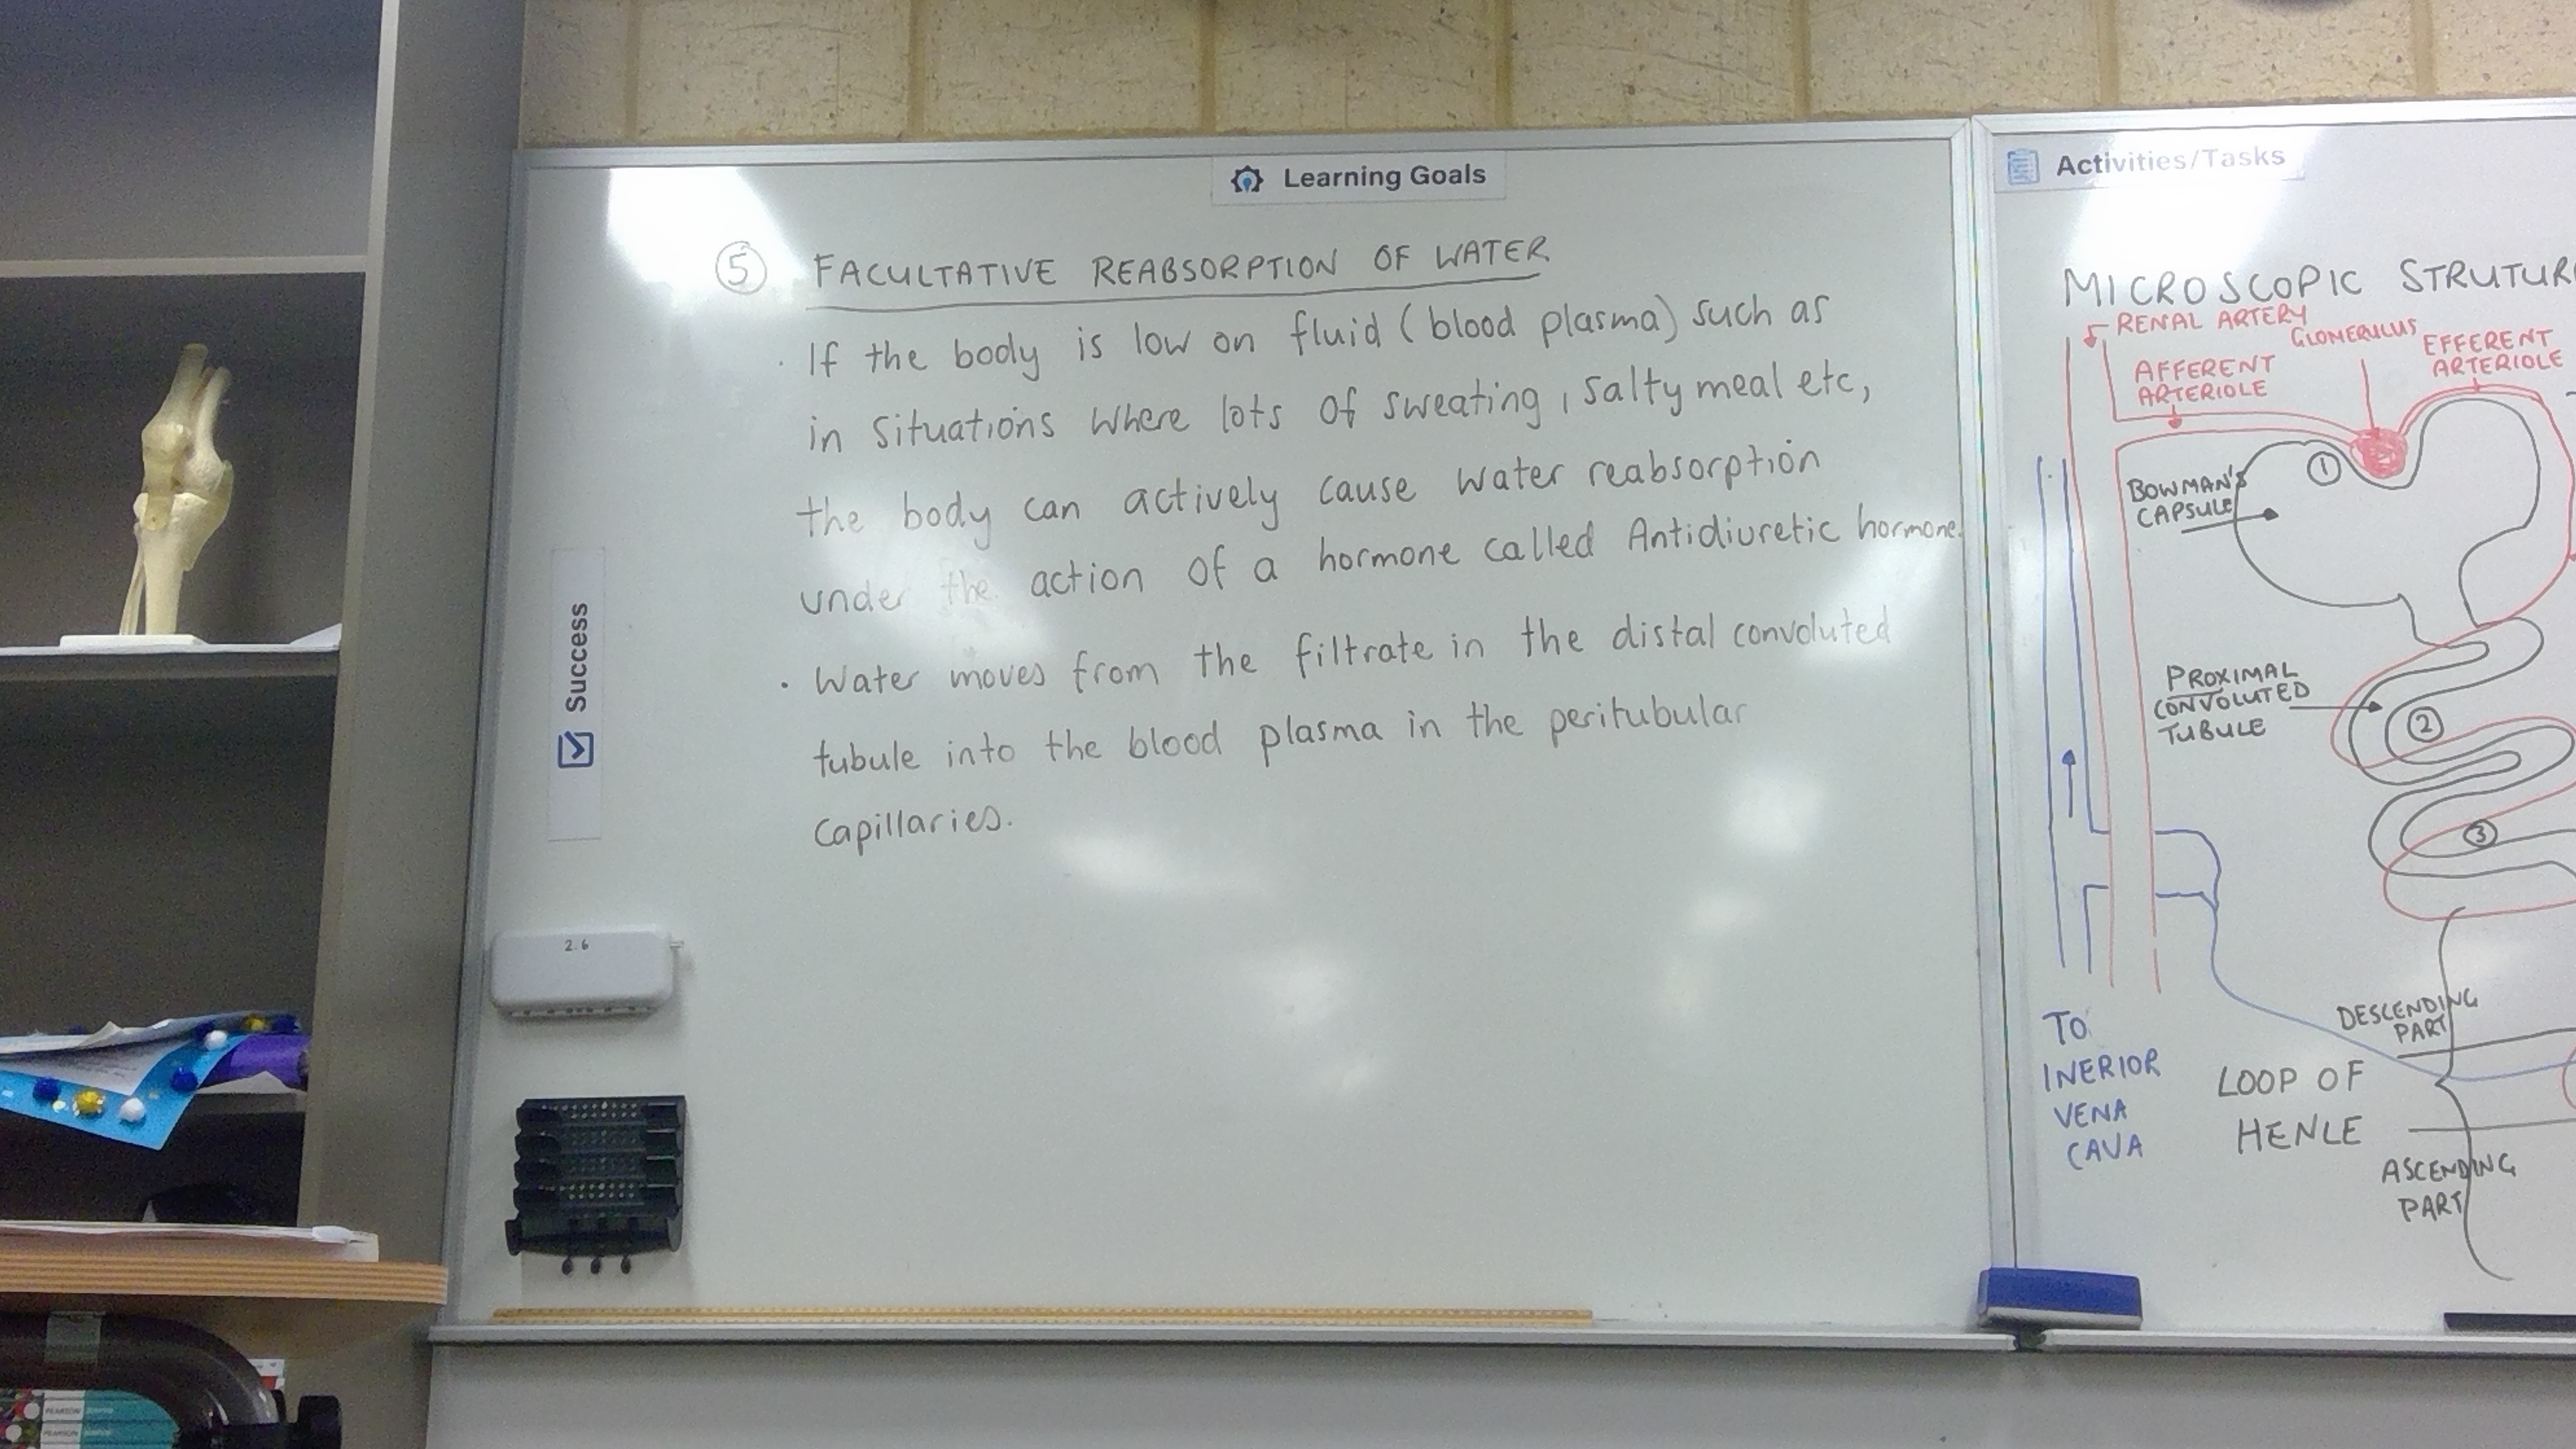 Learning Goals
5 FACULTATIVE REABSORPTION OF WATER
· If the body is low on fluid (blood plasma) such as
in situations where lots of sweating, salty meal etc,
the body can actively cause water reabsorption
under the action of a hormone called Antidiuretic hormone.
· Water moves from the filtrate in the distal convoluted
tubule into the blood plasma in the peritubular
capillaries.
Success
2.6
Activities/Tasks
MICROSCOPIC STRUTUR
RENAL ARTERY
GLOMERULUS
EFFERENT
ARTERIOLE
AFFERENT
ARTERIOLE
1
BOWMAN'S
CAPSULE
PROXIMAL
CONVOLUTED
TUBULE
2
3
DESCENDING
PART
TO
INERIOR
VENA
CAVA
LOOP OF
HENLE
ASCENDING
PART
PEARSON
PEARSON